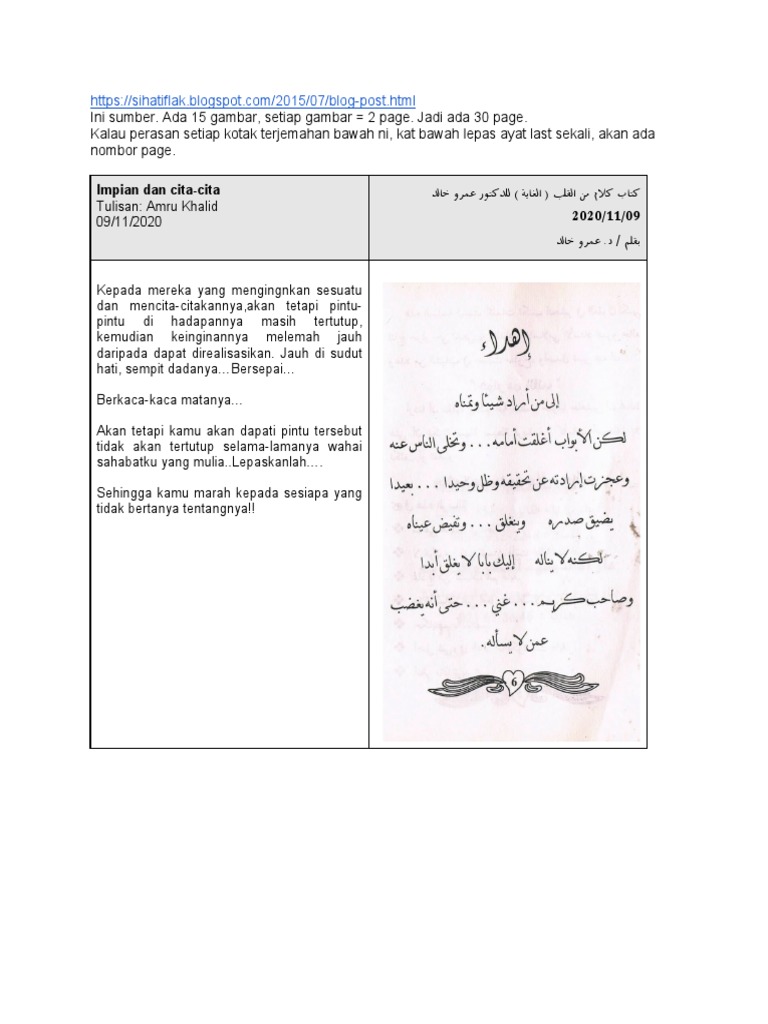 https://sihatiflak.blogspot.com/2015/07/blog-post.html
Ini sumber. Ada 15 gambar, setiap gambar = 2 page. Jadi ada 30 page.
Kalau perasan setiap kotak terjemahan bawah ni, kat bawah lepas ayat last sekali, akan ada
nombor page.
Impian dan cita-cita
Tulisan: Amru Khalid
09/11/2020
كتاب كلام من القلب ( الغاية ) للدكتور عمرو خالد
2020/11/09
بقلم / د. عمرو خالد
Kepada mereka yang mengingnkan sesuatu
dan mencita-citakannya,akan tetapi pintu-
pintu di hadapannya masih tertutup,
kemudian keinginannya melemah jauh
daripada dapat direalisasikan. Jauh di sudut
hati, sempit dadanya…Bersepai…
Berkaca-kaca matanya…
Akan tetapi kamu akan dapati pintu tersebut
tidak akan tertutup selama-lamanya wahai
sahabatku yang mulia..Lepaskanlah….
Sehingga kamu marah kepada sesiapa yang
tidak bertanya tentangnya!!
إهداء
إلى من أراد شيئا وتمناه
لكن الأبواب أغلقت أمامه... وتخلى الناس عنه
وعجزت إرادته عن تحقيقه وظل وحيدا ... بعيدا
يضيق صدره وينغلق ... وتفيض عيناه
لكنه لا يناله إليك بابا لا يغلق أبدا
وصاحب كريم ... غني ... حتى أنه يغضب
عمن لا يسأله.
6